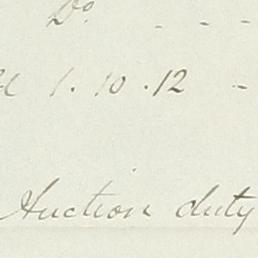 Do - - -
1 . 10 . 12 -
Auction duty